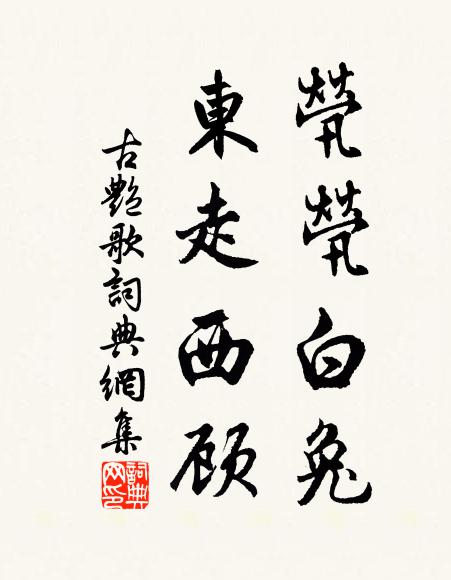 煢煢白兔
東走西顾
古艷歌詞典網集
詞典网印